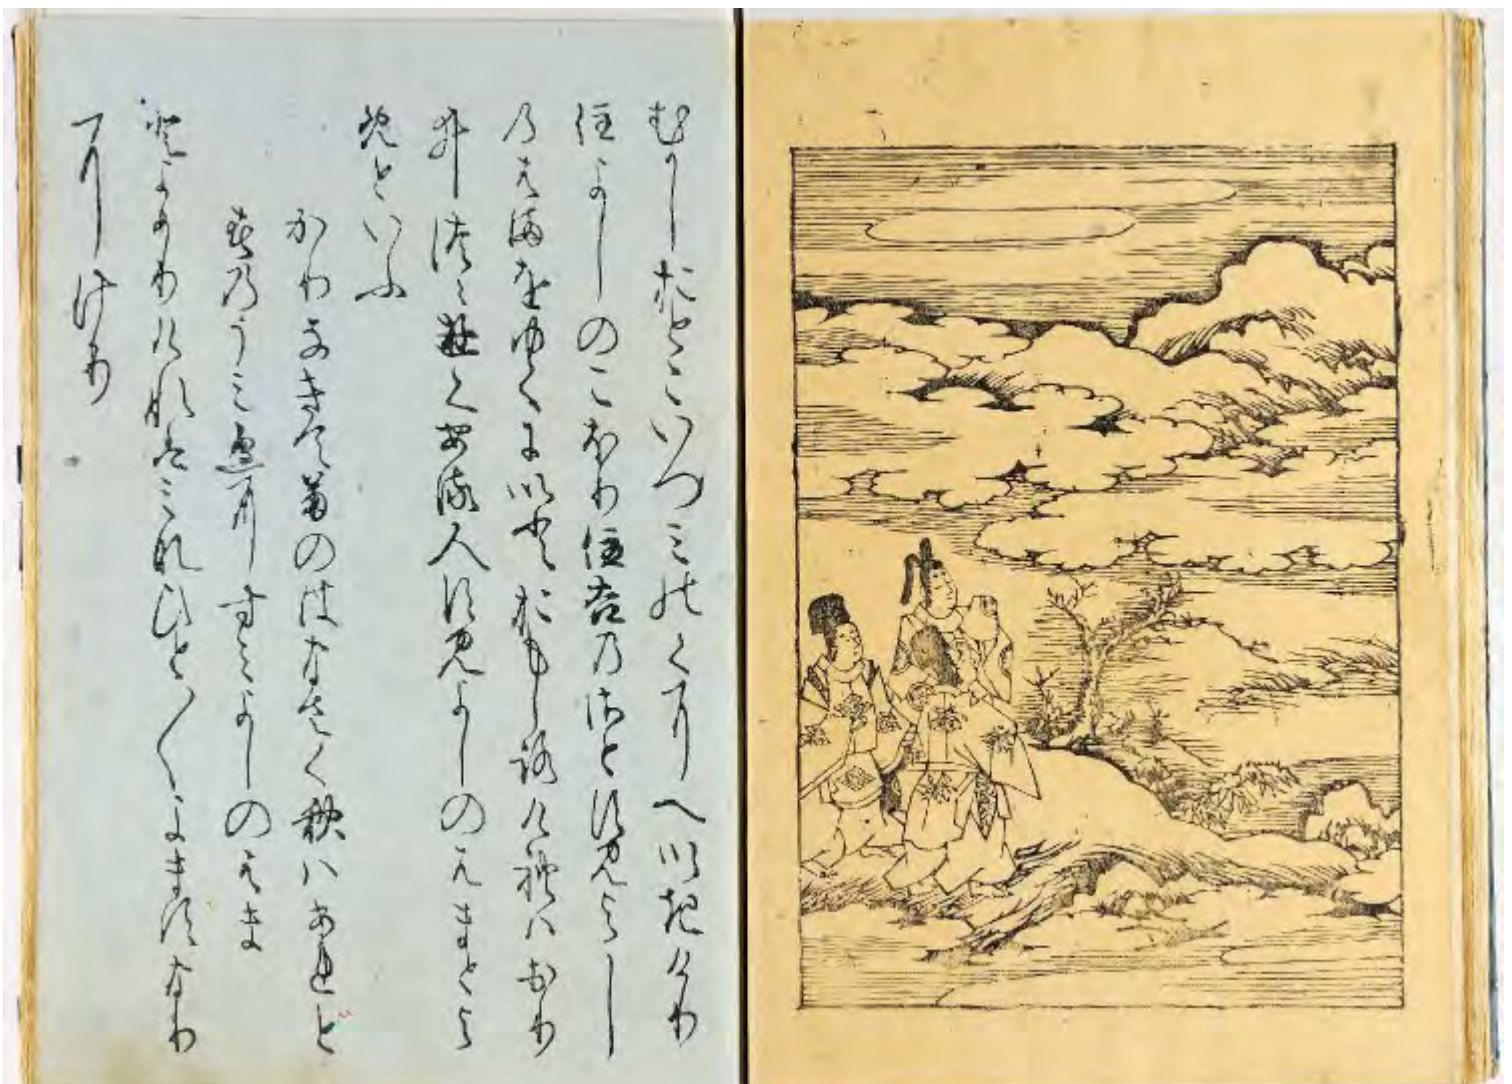 むかしおとこいつみのくにへいきけり
住よしのこほり住吉のさとすみよし
のはまをゆくにいとおもしろけれハおり
ゐつゝゆくある人すみよしのはまとよ
めといふ
かりなきて菊のはなさく秋ハあれど
春のうミ邊にすみよしのはま
とよめりけれはみなひと〱よますなり
にけり